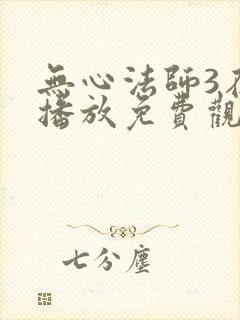 無心法師3
播放免費觀
七分塵